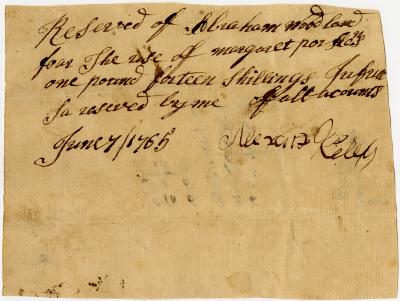 Reserved of Abraham woodland
four The use of margaret por
one pound fixteen Shillings In full
So reserved by me off all acounts
June 7/1765
Alexdr Kelly